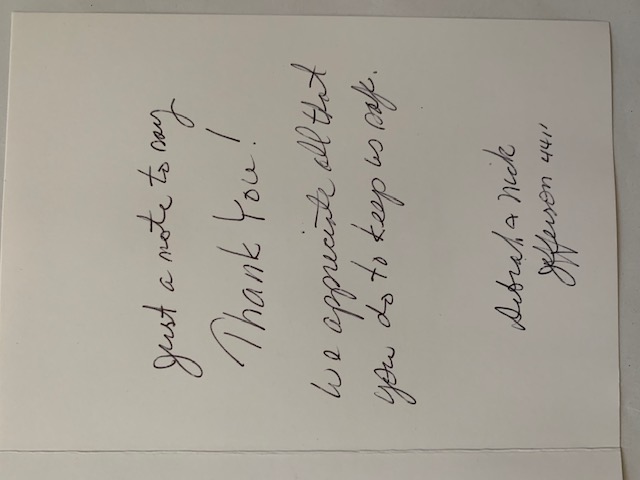 Just a note to say
Thank You!
We appreciate all that
you do to keep us safe.
Debrah & Nick
Jefferson 4411